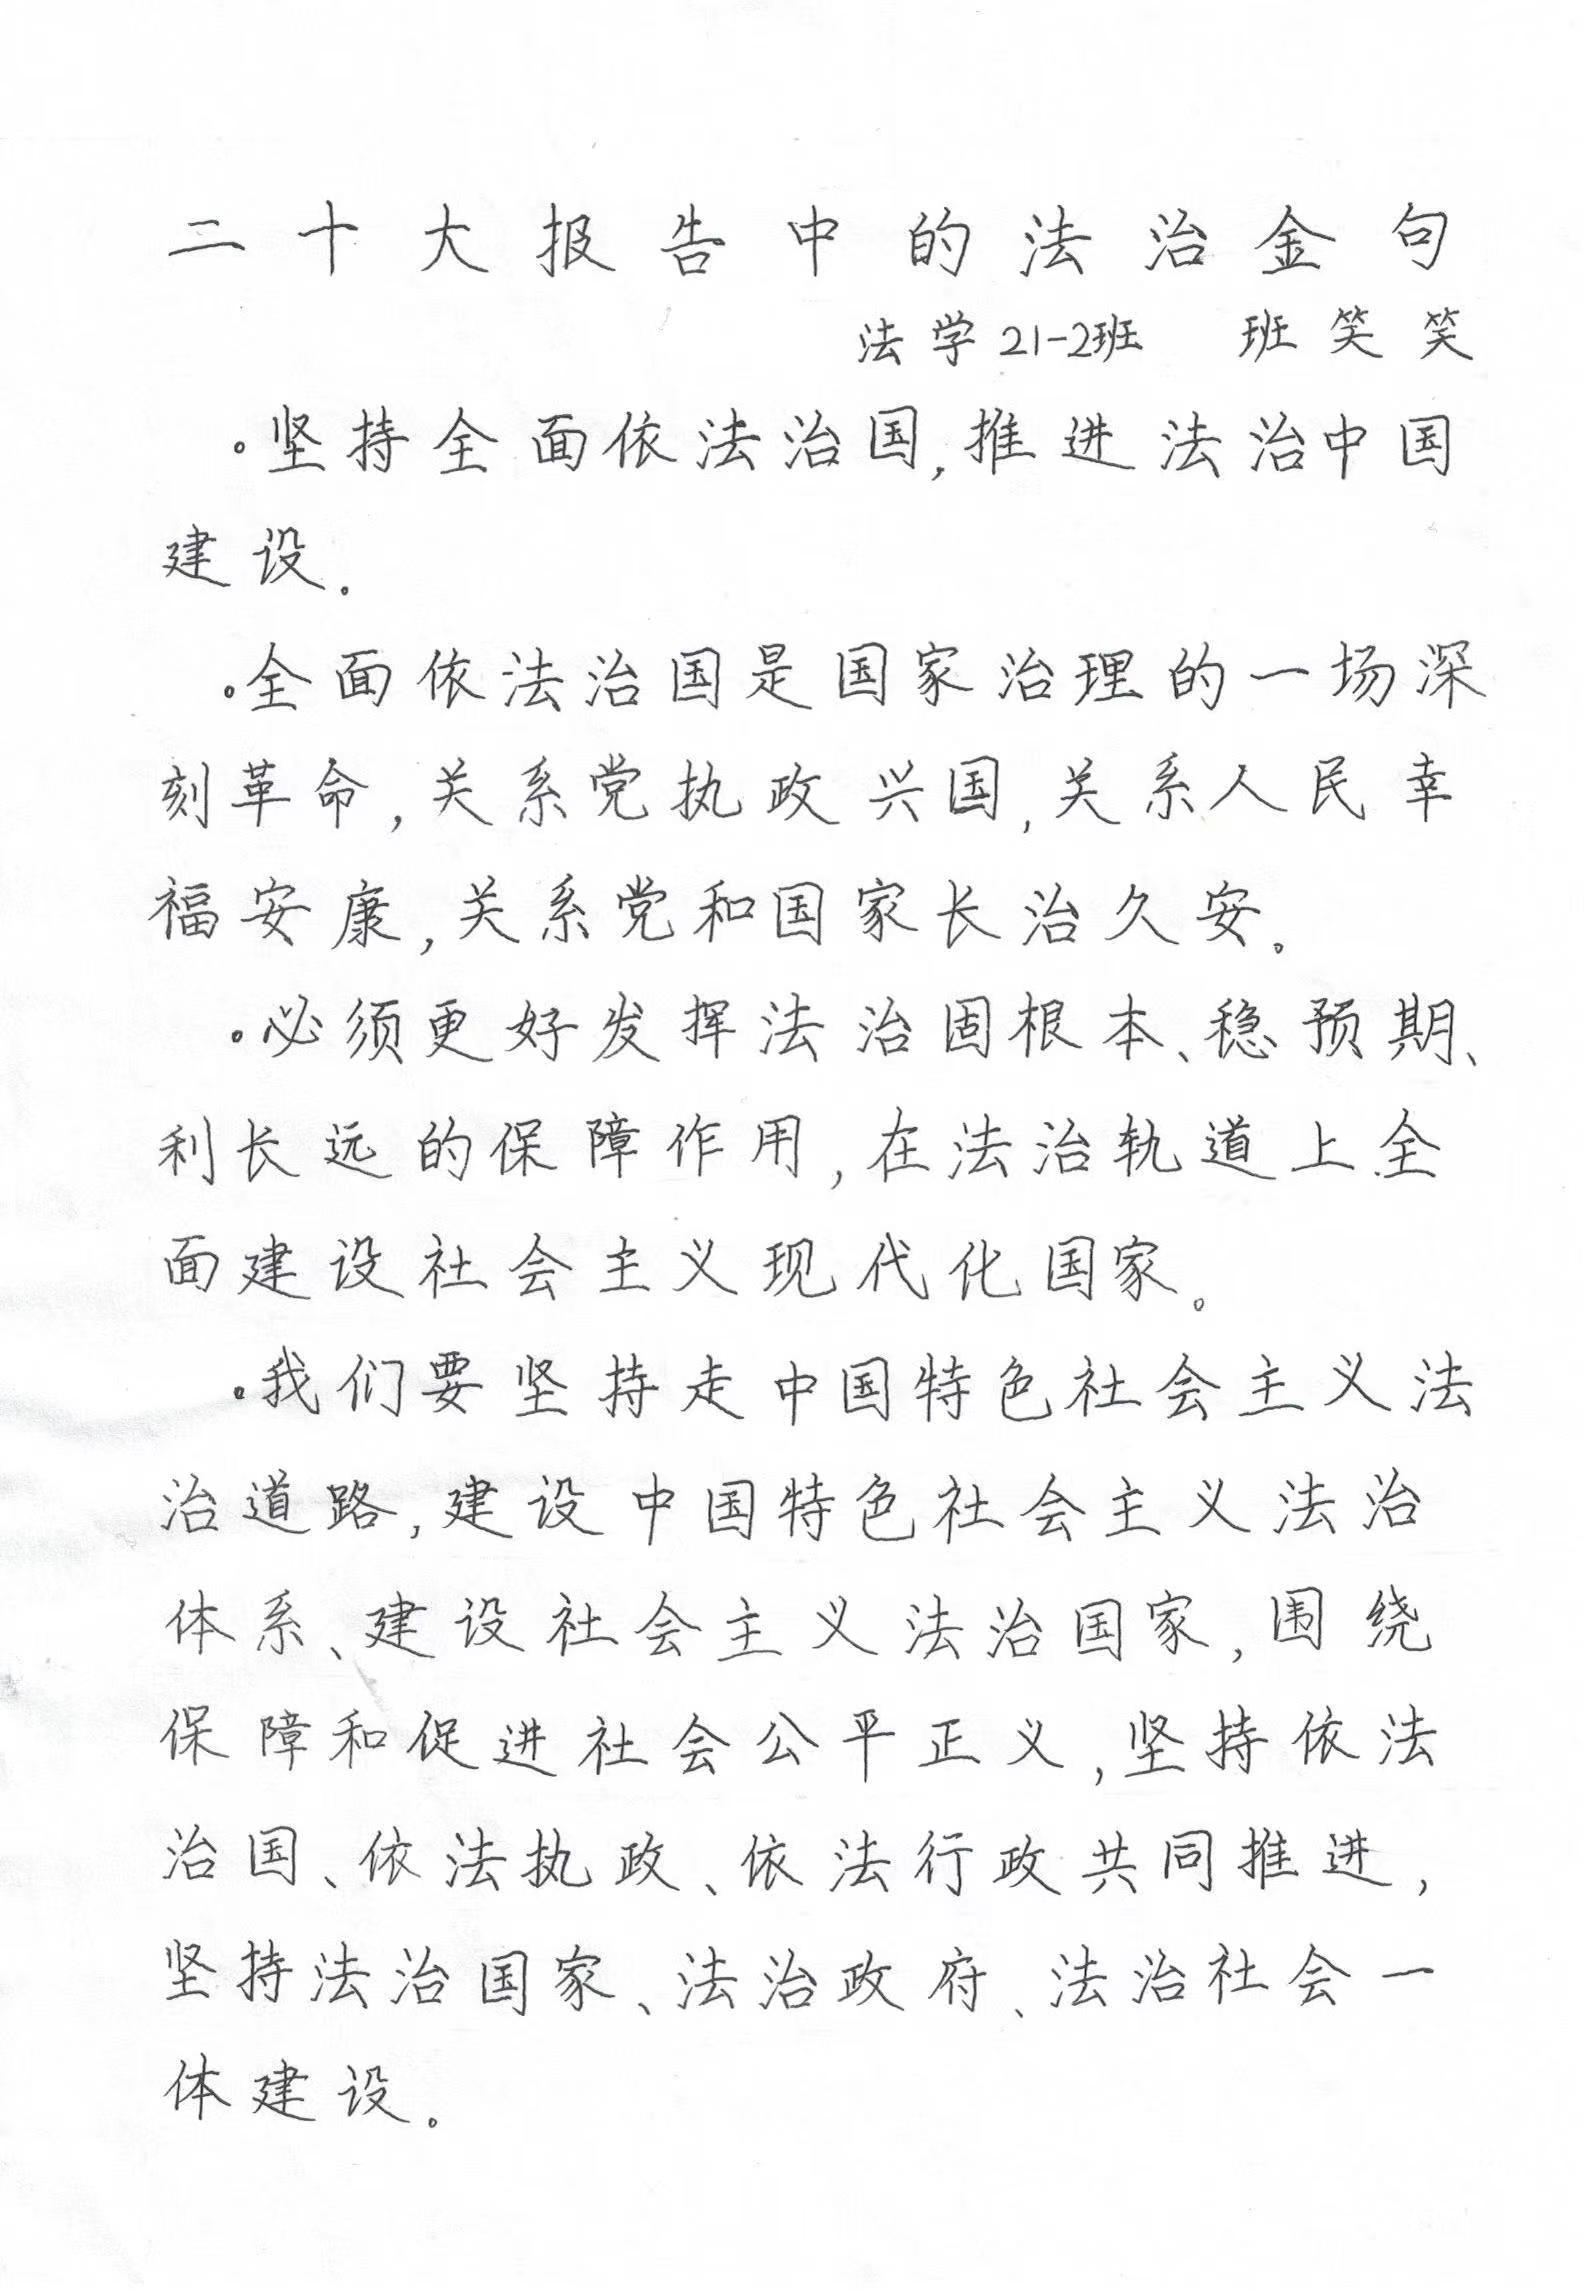 二十大报告中的法治金句
法学21-2班 班笑笑
·坚持全面依法治国,推进法治中国
建设。
·全面依法治国是国家治理的一场深
刻革命,关系党执政兴国,关系人民幸
福安康,关系党和国家长治久安。
·必须更好发挥法治固根本、稳预期、
利长远的保障作用,在法治轨道上全
面建设社会主义现代化国家。
·我们要坚持走中国特色社会主义法
治道路,建设中国特色社会主义法治
体系、建设社会主义法治国家,围绕
保障和促进社会公平正义,坚持依法
治国、依法执政、依法行政共同推进,
坚持法治国家、法治政府、法治社会一
体建设。